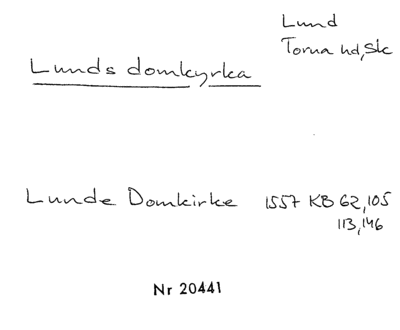 Lund
Torna hd, Sk
Lunds domkyrka
Lunde Domkirke 1557 KB 62, 105
113, 146
Nr 20441